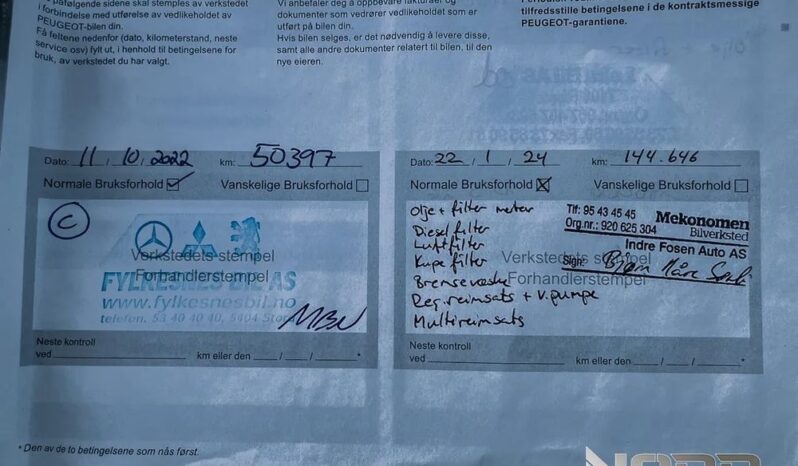 påfølgende sidene skal stemples av verkstedet
i forbindelse med utførelse av vedlikeholdet av
PEUGEOT-bilen din.
Få feltene nedenfor (dato, kilometerstand, neste
service osv) fylt ut, i henhold til betingelsene for
bruk, av verkstedet du har valgt.
Vi anbefaler deg å oppbevare fakturaer og
dokumenter som vedrører vedlikeholdet som er
utført på bilen din.
Hvis bilen selges, er det nødvendig å levere disse,
samt alle andre dokumenter relatert til bilen, til den
nye eieren.
tilfredsstille betingelsene i de kontraktsmessige
PEUGEOT-garantiene.
Dato: 11 / 10 / 2022 km: 50397
Normale Bruksforhold Vanskelige Bruksforhold
C
Verkstedets stempel
Forhandlerstempel
FYLKESNES BIL AS
www.fylkesnesbil.no
telefon. 53 40 40 40, 5404 Stord
MBN
Neste kontroll
ved km eller den / / *
Dato: 22 / 1 / 24 km: 144.646
Normale Bruksforhold Vanskelige Bruksforhold
Olje + filter motor
Diesel filter
Luftfilter
Kupe filter
Bremsevæske
Reg.reimsats + v.pumpe
Multireimsats
Tlf: 95 43 45 45 Mekonomen
Org.nr.: 920 625 304 Bilverksted
Indre Fosen Auto AS
Sign:
Verkstedets stempel
Forhandlerstempel
Neste kontroll
ved km eller den / / *
* Den av de to betingelsene som nås først.